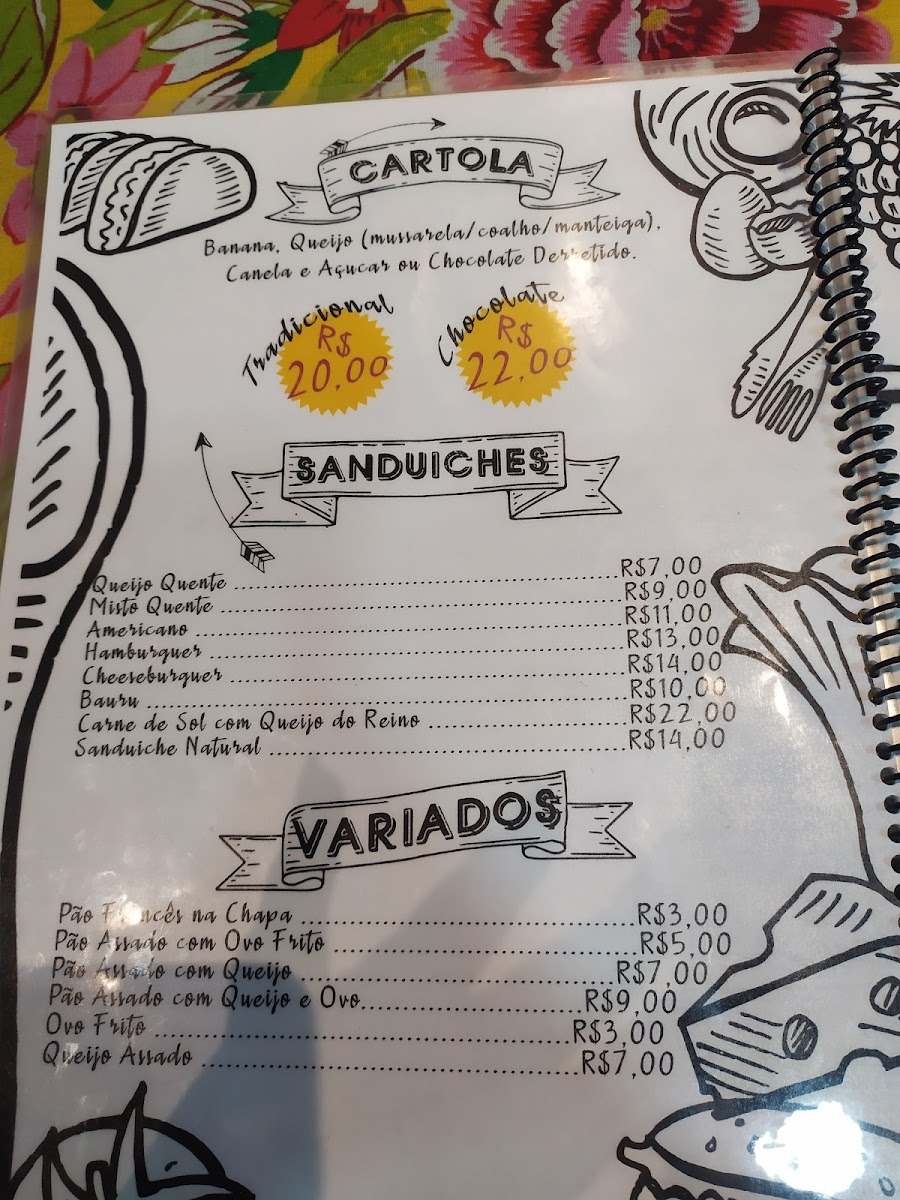 CARTOLA
Banana, Queijo (mussarela/coalho/manteiga),
Canela e Açucar ou Chocolate Derretido.
Tradicional
R$
20,00
Chocolate
R$
22,00
SANDUICHES
Queijo Quente ........ R$7,00
Misto Quente ........ R$9,00
Americano ........ R$11,00
Hamburguer ........ R$13,00
Cheeseburguer ........ R$14,00
Bauru ........ R$10,00
Carne de Sol com Queijo do Reino ........ R$22,00
Sanduiche Natural ........ R$14,00
VARIADOS
Pão Francês na Chapa ........ R$3,00
Pão Assado com Ovo Frito ........ R$5,00
Pão Assado com Queijo ........ R$7,00
Pão Assado com Queijo e Ovo ........ R$9,00
Ovo Frito ........ R$3,00
Queijo Assado ........ R$7,00